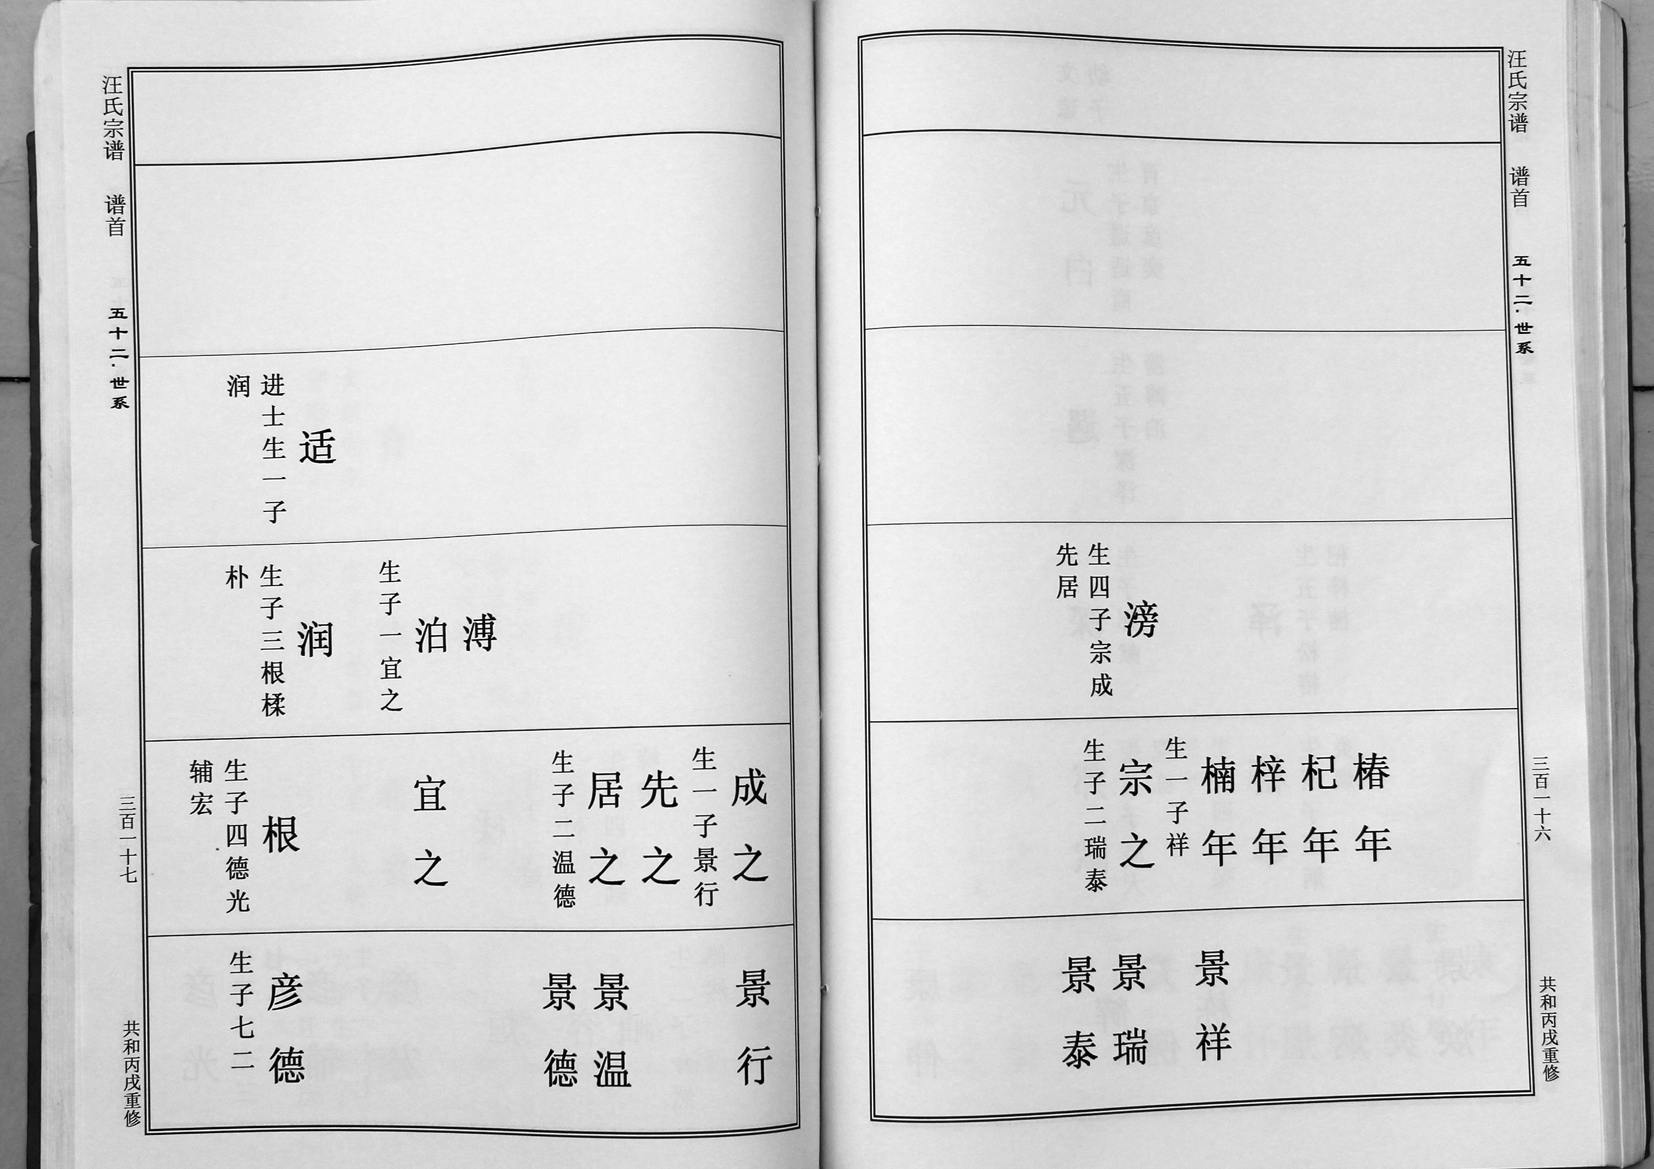 汪氏宗谱 谱首 五十二.世系 三百一十六 共和丙戌重修
滂
生四子宗成
先居
椿年
杞年
梓年
楠年
生一子祥
宗之
生子二瑞泰
景祥
景瑞
景泰
适
进士生一子
润
溥
泊
生子一宜之
润
生子三根楺
朴
成之
生一子景行
先之
居之
生子二温德
宜之
根
生子四德光
辅宏
景行
景温
景德
彦德
生子七二
汪氏宗谱 谱首 五十二.世系 三百一十七 共和丙戌重修